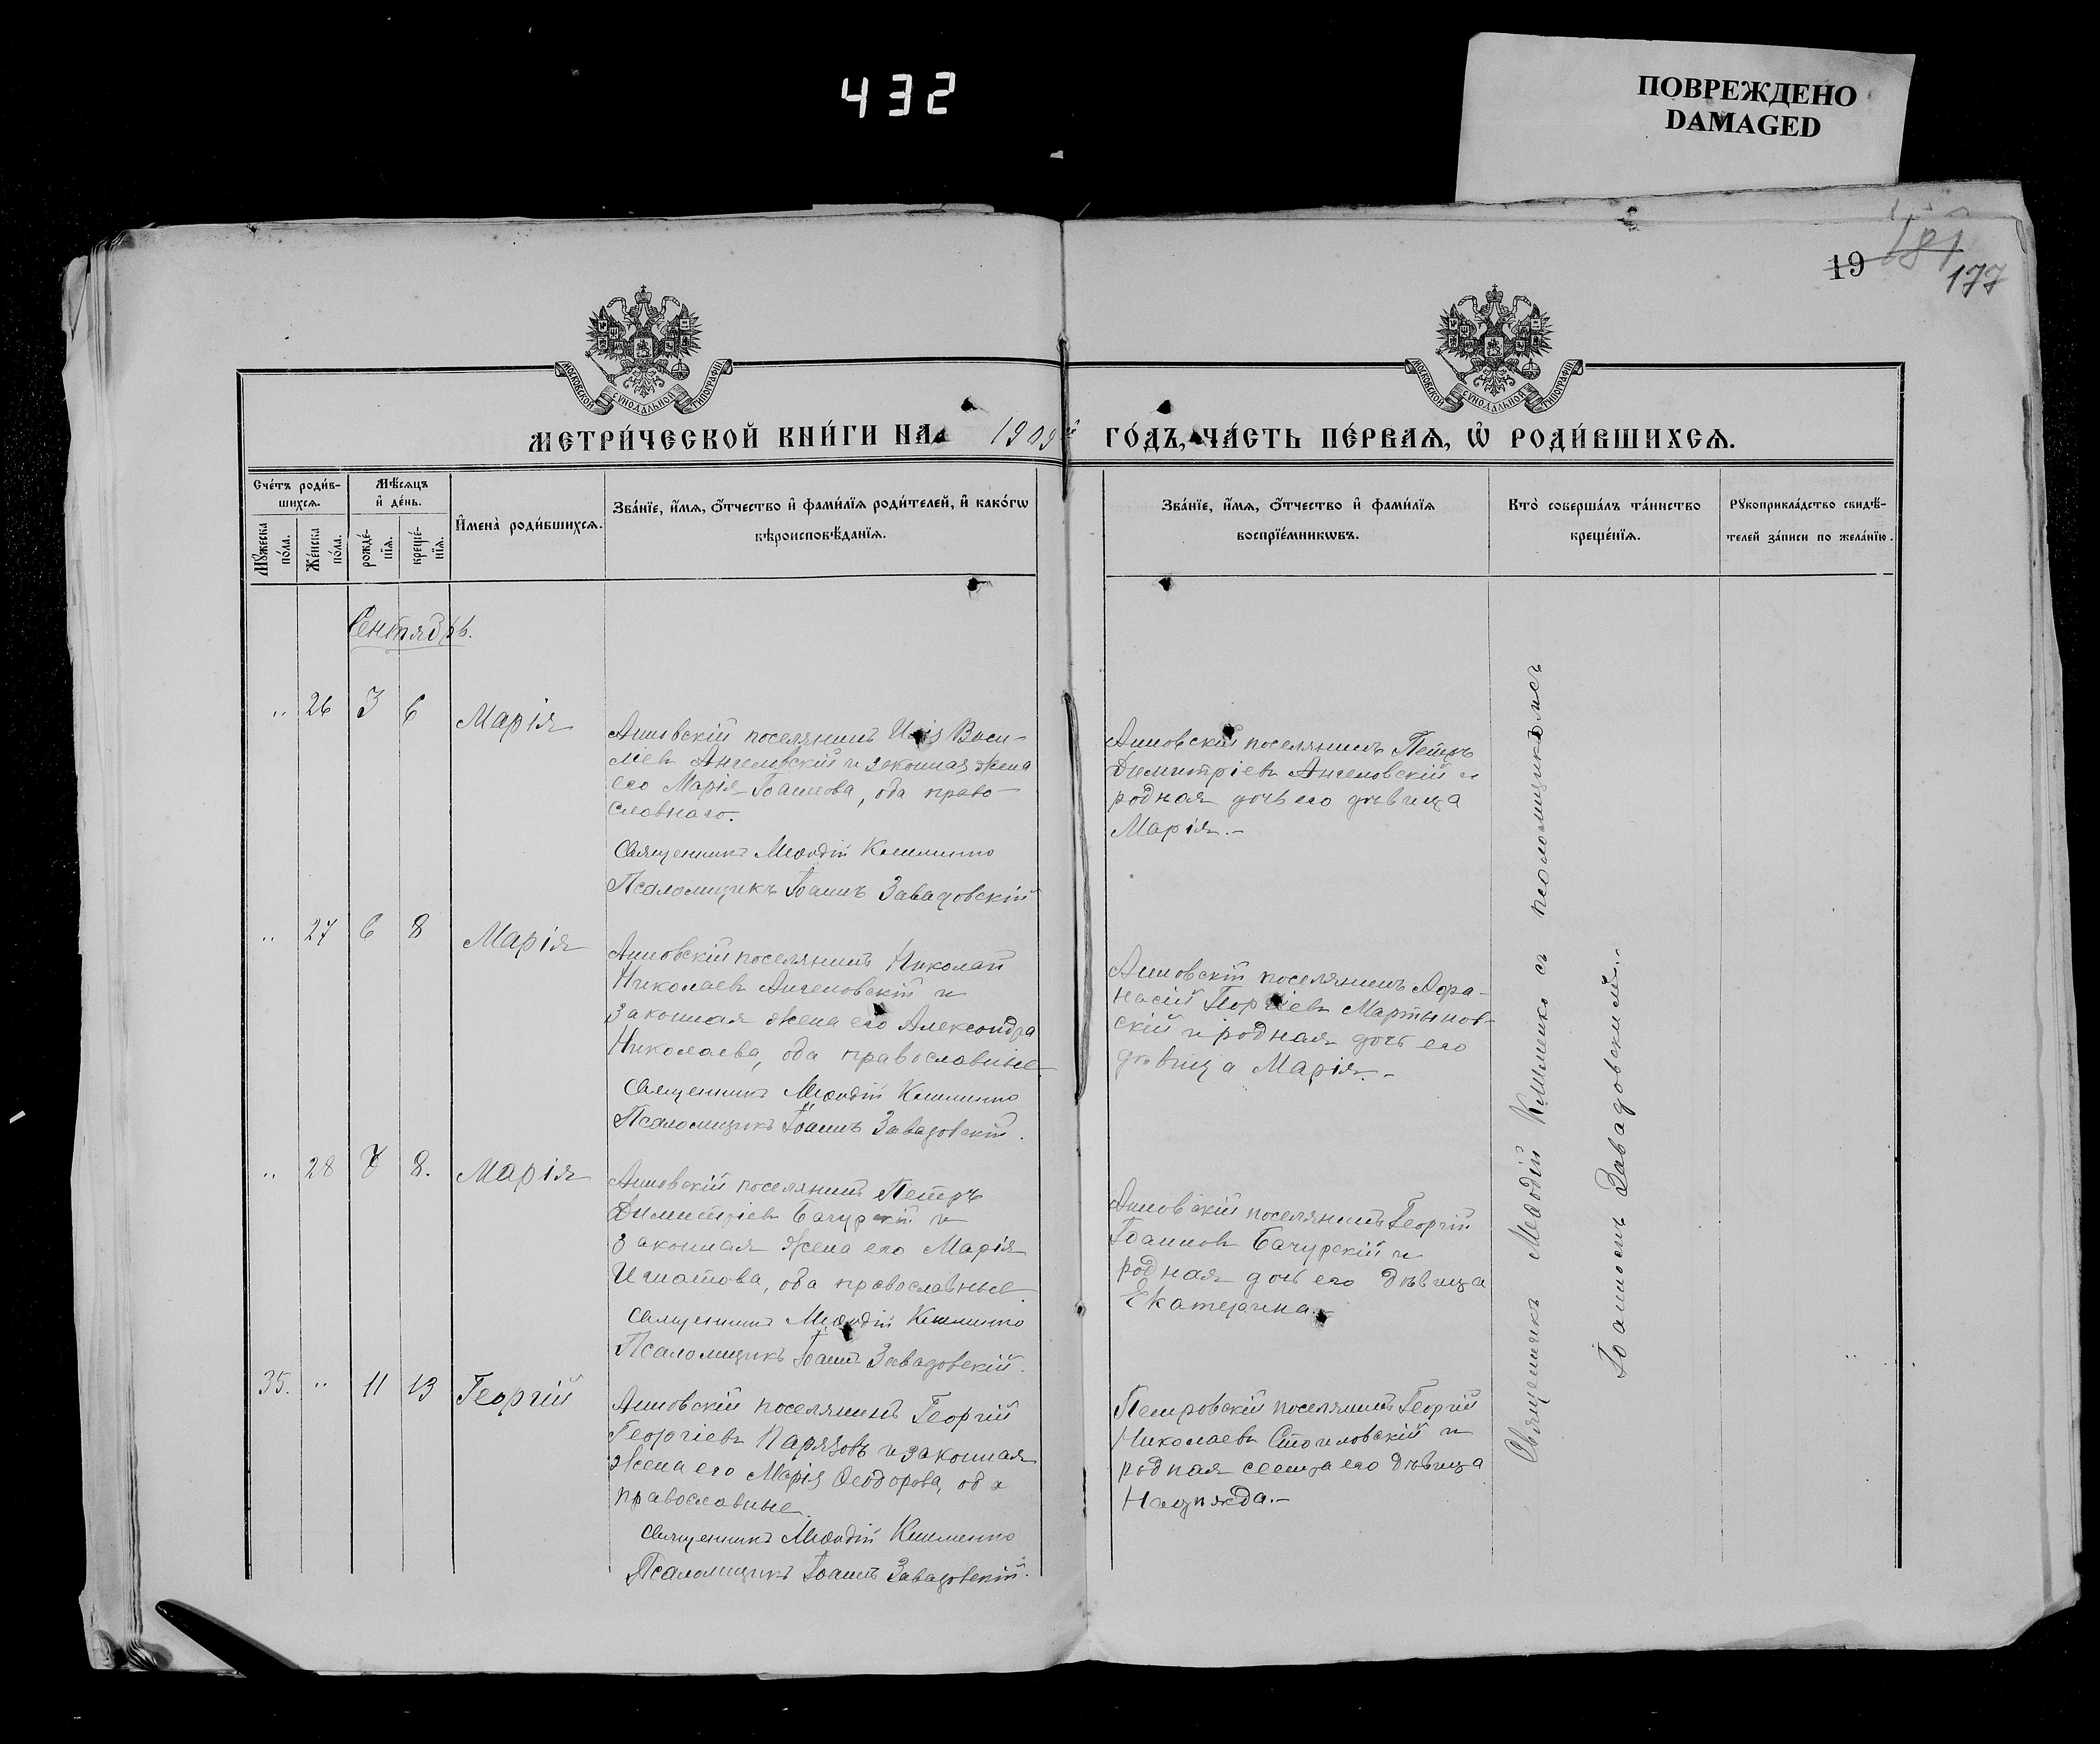 432
ПОВРЕЖДЕНО
DAMAGED
181
19
177
МОСКОВСКОЙ СУНОДАЛЬНОЙ ТИПОГРАФІИ
МОСКОВСКОЙ СУНОДАЛЬНОЙ ТИПОГРАФІИ
МЕТРИ́ЧЕСКОЙ КНИ́ГИ НА 1909й ГО́ДЪ, ЧА́СТЬ ПЕ́РВАѦ, Ѡ҆ РОДИ́ВШИХСѦ.
Сче́тъ роди́в-
шихсѧ.
Мꙋжеска по́ла.
Же́нска по́ла.
Мѣ́сѧцъ
и҆ де́нь.
рожде́-
нїѧ.
креще́-
нїѧ.
И҆мена̀ роди́вшихсѧ.
Зва́нїе, и҆́мѧ, ѻ҆́тчество и҆ фами́лїѧ роди́телей, и҆ како́гѡ
вѣроисповѣ́данїѧ.
Зва́нїе, и҆́мѧ, ѻ҆́тчество и҆ фами́лїѧ
воспрїе́мникѡвъ.
Кто̀ соверша́лъ та́инство
креще́нїѧ.
Рꙋкоприкла́дство свидѣ́-
телей за́писи по жела́нїю.
Сентябрь.
" 26 3 6 Марія
Анновскій поселянинъ Васи-
ліевъ Ангеловскій и законная жена
его Марія Іоаннова, оба право-
славнаго.
Священникъ Меѳодій Клименко
Псаломщикъ Іоаннъ Завадовскій
Анновскій поселянинъ Петръ
Димитріевъ Ангеловскій и
родная дочь его дѣвица
Марія.-
" 27 6 8 Марія
Анновскій поселянинъ Николай
Николаевъ Ангеловскій и
законная жена его Александра
Николаева, оба православные
Священникъ Меѳодій Клименко
Псаломщикъ Іоаннъ Завадовскій.
Анновскій поселянинъ Аѳа-
насій Георгіевъ Мартынов-
скій и родная дочь его
дѣвица Марія.-
" 28 7 8. Марія
Анновскій поселянинъ Петръ
Димитріевъ Бачурскій и
законная жена его Марія
Игнатова, оба православные.
Священникъ Меѳодій Клименко
Псаломщикъ Іоаннъ Завадовскій.
Анновскій поселянинъ Георгій
Іоанновъ Бачурскій и
родная дочь его дѣвица
Екатерина.-
35. " 11 13 Георгій
Анновскій поселянинъ Георгій
Георгіевъ Парязовъ и законная
жена его Марія Ѳеодорова, оба
православные.
Священникъ Меѳодій Клименко
Псаломщикъ Іоаннъ Завадовскій.
Петровскій поселянинъ Георгій
Николаевъ Стоиловскій и
родная сестра его дѣвица
Надежда.-
Священникъ Меѳодій Клименко съ псаломщикомъ
Іоанномъ Завадовскимъ.-